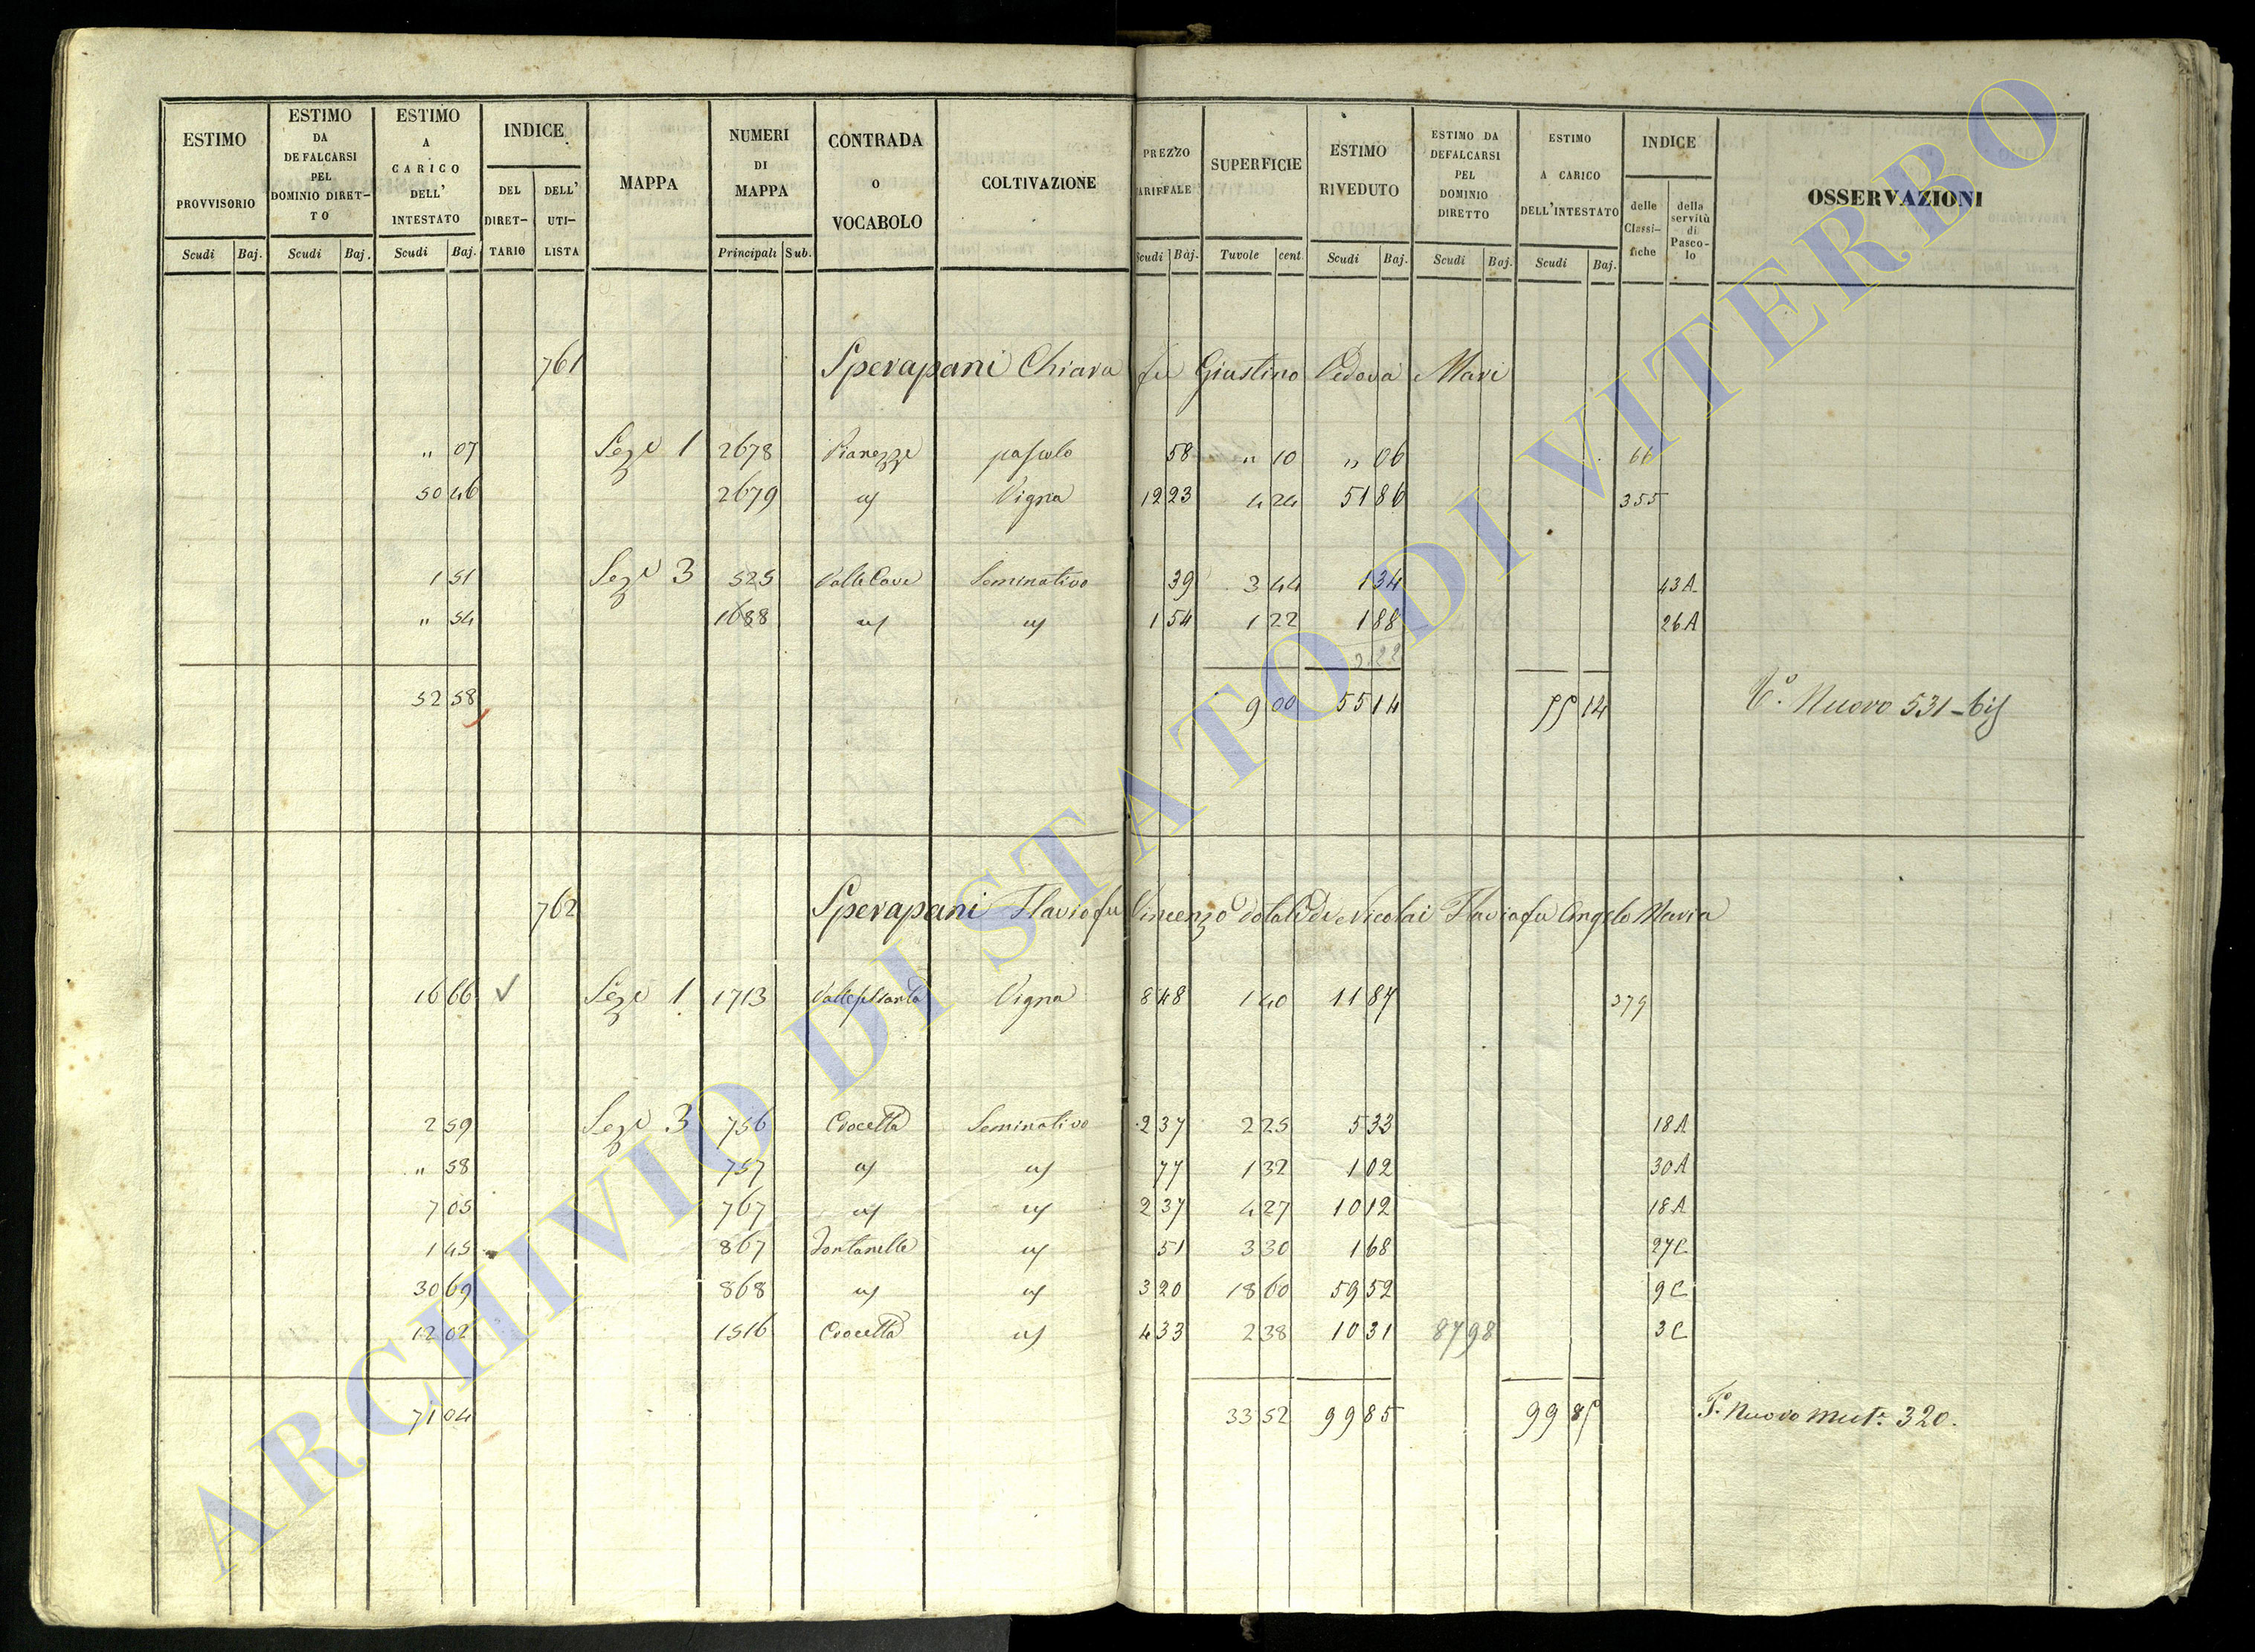 ESTIMO PROVVISORIO ESTIMO DA DEFALCARSI PEL DOMINIO DIRETTO ESTIMO A CARICO DELL' INTESTATO INDICE DEL DIRETTARIO DELL' UTILISTA MAPPA NUMERI DI MAPPA CONTRADA O VOCABOLO COLTIVAZIONE PREZZO TARIFFALE SUPERFICIE ESTIMO RIVEDUTO ESTIMO DA DEFALCARSI PEL DOMINIO DIRETTO ESTIMO A CARICO DELL'INTESTATO INDICE delle Classifiche della servitù di Pascolo OSSERVAZIONI
Scudi Baj. Scudi Baj. Scudi Baj. Principali Sub. Scudi Baj. Tavole cent. Scudi Baj. Scudi Baj. Scudi Baj.
761 Sperapani Chiara fu Giustino Vedova Mari
" 07 Sezе 1 2678 Pianezze pascolo 58 " 10 " 06 66
50 46 2679 Vigna 12 23 4 24 51 86 355
1 51 Seze 3 525 Valle Cave Seminativo 39 3 44 1 34 43 A
" 54 1688 1 54 1 22 1 88 26 A
3 22
52 58 9 00 55 14 55 14 Nuovo 531-bis
762 Sperapani Flavio fu Vincenzo dotale de Nicolai Flavia fu Angelo Maria
16 66 Seze 1 1713 Vigna 8 48 1 40 11 87 379
2 59 Seze 3 756 Crocetta Seminativo 2 37 2 25 5 33 18 A
" 58 757 77 1 32 1 02 30 A
7 05 767 2 37 4 27 10 12 18 A
1 45 867 Fontanelle 51 3 30 1 68 27 C
30 69 868 3 20 18 60 59 52 9 C
12 02 1516 Crocetta 4 33 2 38 10 31 87 98 3 C
71 04 33 52 99 85 99 85 Nuovo mut. 320.
ARCHIVIO DI STATO DI VITERBO